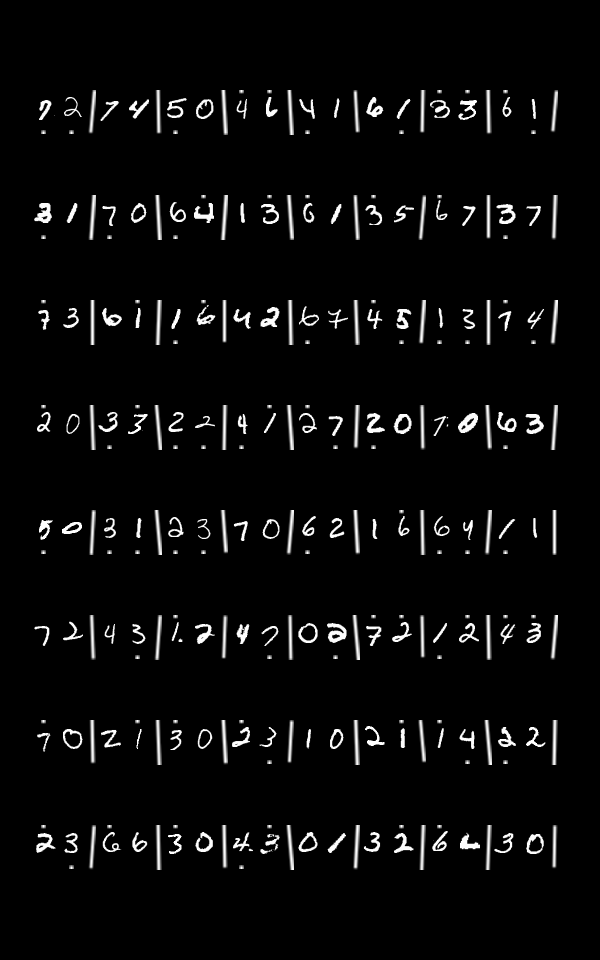 7 2 | 7 4 | 5 0 | 4 6 | 4 1 | 6 1 | 3 3 | 6 1 |
3 1 | 7 0 | 6 4 | 1 3 | 6 1 | 3 5 | 6 7 | 3 7 |
7 3 | 6 1 | 1 6 | 4 2 | 6 7 | 4 5 | 1 3 | 7 4 |
2 0 | 3 3 | 2 2 | 4 1 | 2 7 | 2 0 | 7 0 | 6 3 |
5 0 | 3 1 | 2 3 | 7 0 | 6 2 | 1 6 | 6 4 | 1 1 |
7 2 | 4 3 | 1 2 | 4 7 | 0 2 | 7 2 | 1 2 | 4 3 |
7 0 | 2 1 | 3 0 | 2 3 | 1 0 | 2 1 | 1 4 | 2 2 |
2 3 | 6 6 | 3 0 | 4 3 | 0 1 | 3 2 | 6 6 | 3 0 |